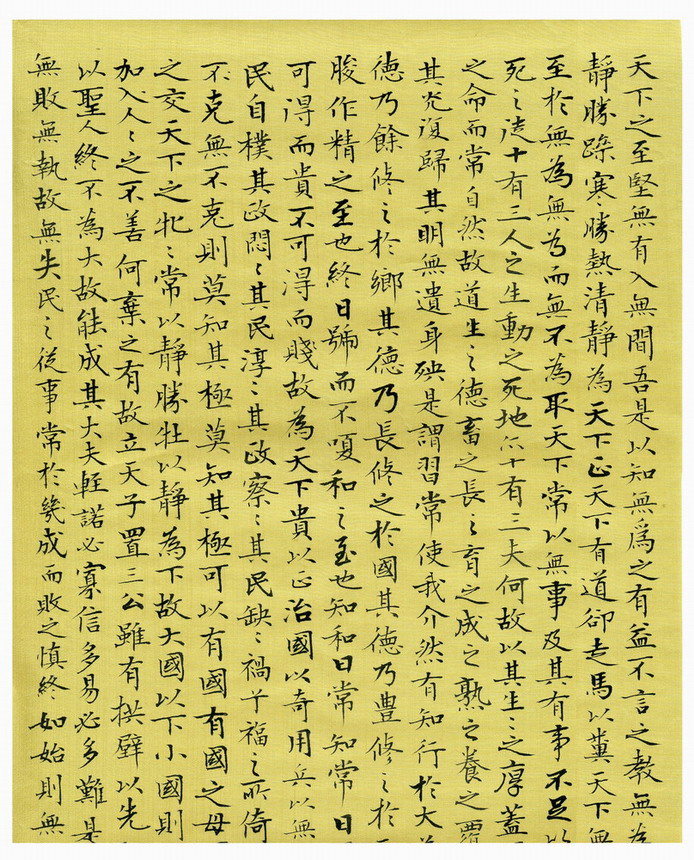 天下之至堅無有入無間吾是以知無爲之有益不言之教無為
靜勝躁寒勝熱清靜為天下正天下有道卻走馬以糞天下無
至於無為無為而無不為取天下常以無事及其有事不足以
死之徒十有三人之生動之死地亦十有三夫何故以其生〻之厚蓋
之命而常自然故道生之德畜之長之育之成之熟之養之覆
其光復歸其明無遺身殃是謂習常使我介然有知行於大
德乃餘修之於鄉其德乃長修之於國其德乃豊修之於
朘作精之至也終日號而不嗄和之至也知和曰常知常曰
可得而貴不可得而賤故為天下貴以正治國以奇用兵以無
民自樸其政悶〻其民淳〻其政察〻其民缺〻禍兮福之所倚
不克無不克則莫知其極莫知其極可以有國有國之母
之交天下之牝〻常以靜勝牡以靜為下故大國以下小國則
加人〻之不善何棄之有故立天子置三公雖有拱璧以先
以聖人終不為大故能成其大夫輕諾必寡信多易必多難是
無敗無執故無失民之從事常於幾成而敗之慎終如始則無